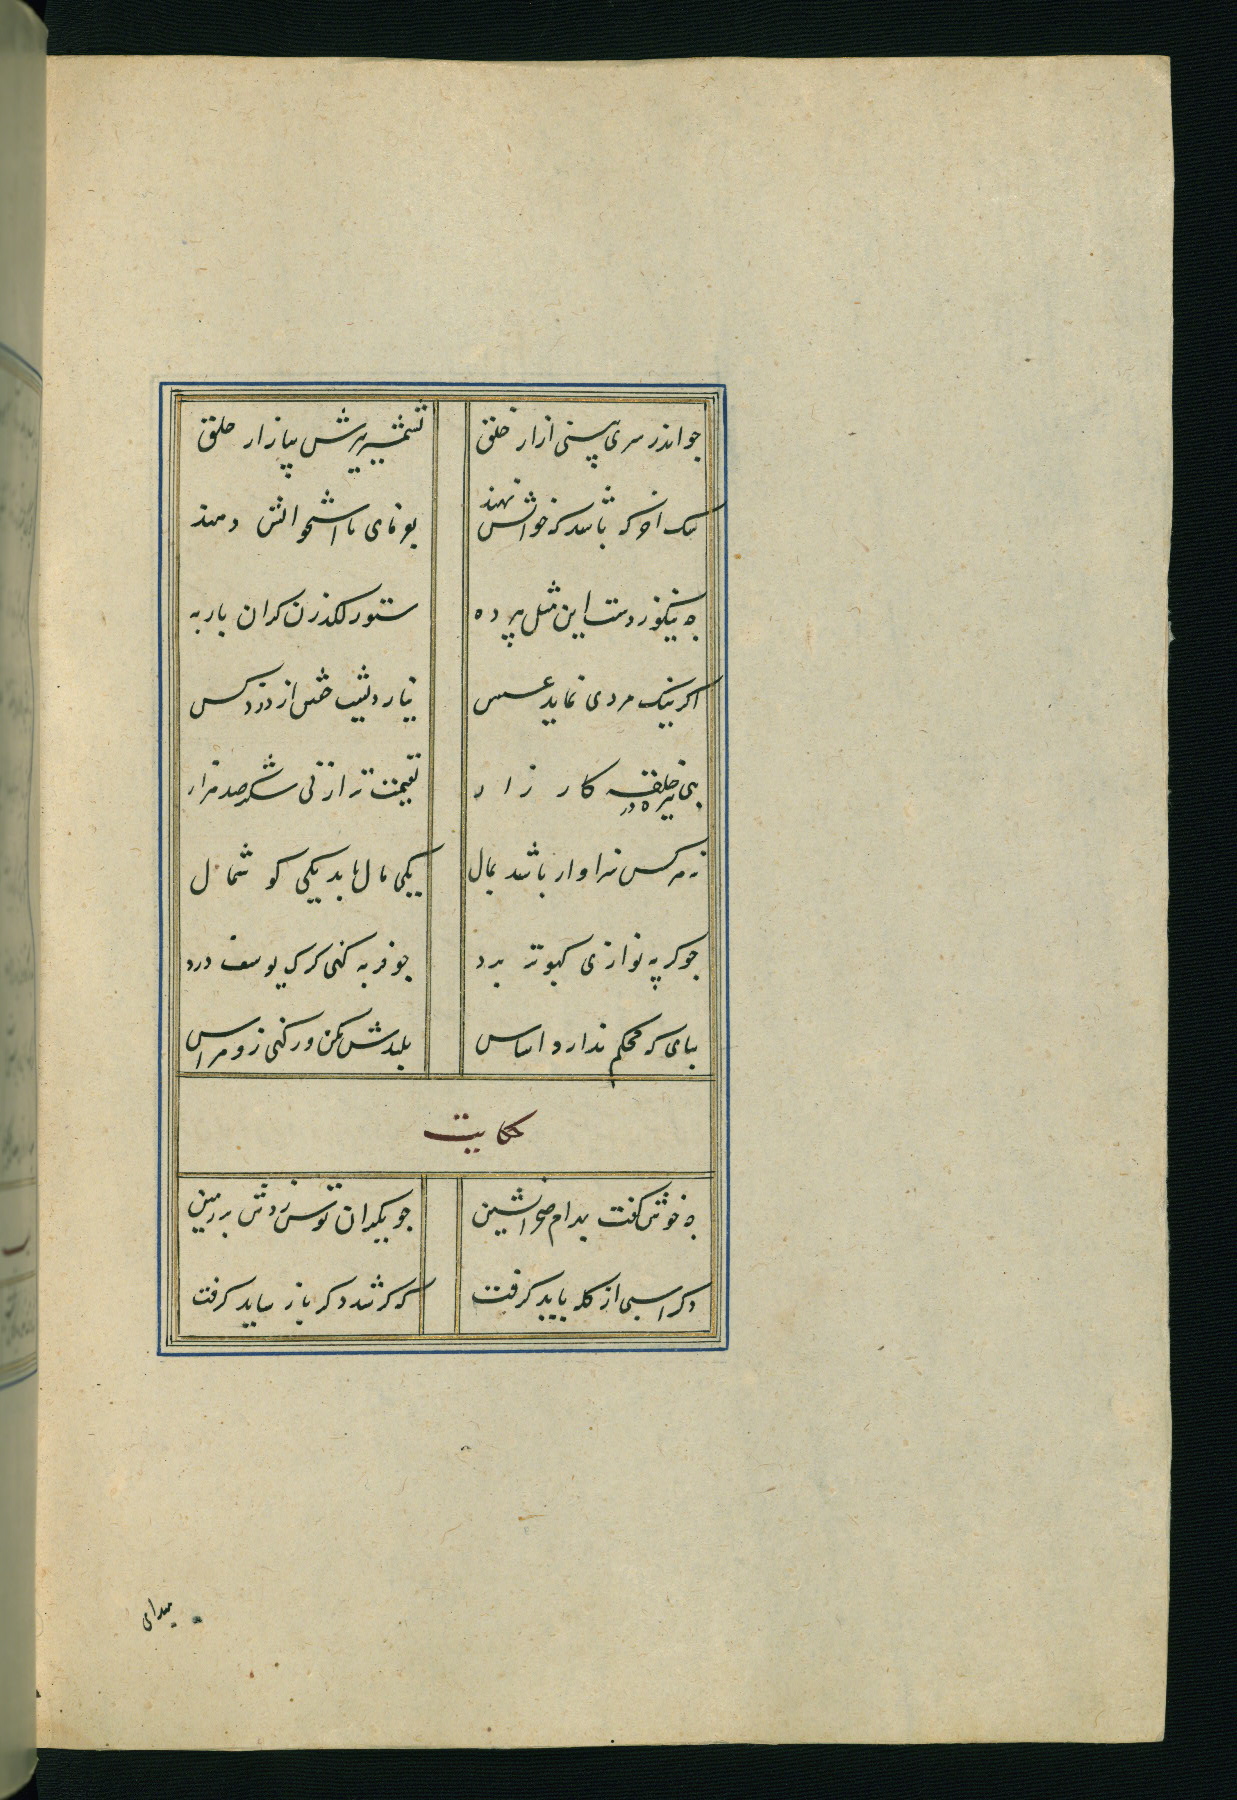 جو اندر سری بینی ازار خلق بشمشیر تیزش بیازار خلق
سک اخر که باشد که خوانش نهند بفرمای تا استخوانش دهند
چه نیکو زدست این مثل پیر ده ستور لکدزن کران بار به
اکر نیک مردی نماید عسس نیارد بشب خفتن از دزد کس
نی نیزه در حلقه کار زار بقیمت تر از نی شکر صد هزار
نه هر کس سزاوار باشد بمال یکی مال باید یکی کوشمال
جو کربه نوازی کبوتر برد جو فربه کنی کرک یوسف درد
بنای که محکم ندارد اساس بلندش مکن ور کنی زو هراس
حکایت
چه خوش کفت بهرام صحرانشین جو یکران توسن زدش بر زمین
دکر اسبی از کله باید کرفت که کر سرکشد باز شاید کرفت